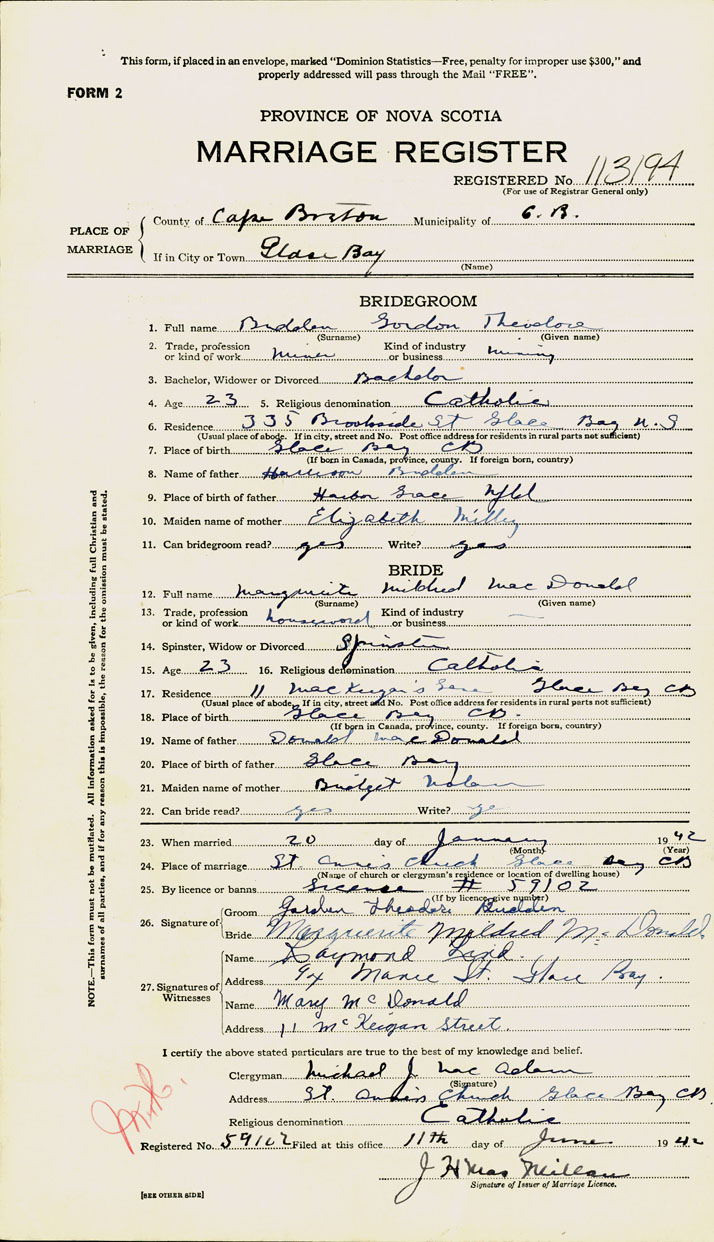 This form, if placed in an envelope, marked "Dominion Statistics—Free, penalty for improper use $300," and
properly addressed will pass through the Mail "FREE".
FORM 2
PROVINCE OF NOVA SCOTIA
MARRIAGE REGISTER
REGISTERED No. 113194
(For use of Registrar General only)
PLACE OF MARRIAGE
County of Cape Breton Municipality of C. B.
If in City or Town Glace Bay
(Name)
BRIDEGROOM
1. Full name Budden Gordon Theodore
(Surname) (Given name)
2. Trade, profession or kind of work Miner Kind of industry or business mining
3. Bachelor, Widower or Divorced Bachelor
4. Age 23 5. Religious denomination Catholic
6. Residence 335 Brookside St Glace Bay N.S
(Usual place of abode. If in city, street and No. Post office address for residents in rural parts not sufficient)
7. Place of birth Glace Bay CB
(If born in Canada, province, county. If foreign born, country)
8. Name of father Harrison Budden
9. Place of birth of father Harbor Grace Nfld
10. Maiden name of mother Elizabeth Milley
11. Can bridegroom read? yes Write? yes
BRIDE
12. Full name Marguerite Mildred Mac Donald
(Surname) (Given name)
13. Trade, profession or kind of work housework Kind of industry or business
14. Spinster, Widow or Divorced Spinster
15. Age 23 16. Religious denomination Catholic
17. Residence 11 MacKeigan's Lane Glace Bay CB
(Usual place of abode. If in city, street and No. Post office address for residents in rural parts not sufficient)
18. Place of birth Glace Bay CB.
(If born in Canada, province, county. If foreign born, country)
19. Name of father Donald MacDonald
20. Place of birth of father Glace Bay
21. Maiden name of mother Bridget Nolan
22. Can bride read? yes Write? ye
23. When married 20 day of January 1942
(Month) (Year)
24. Place of marriage St. Anne's Church Glace Bay CB
(Name of church or clergyman's residence or location of dwelling house)
25. By licence or banns License # 59102
(If by licence, give number)
26. Signature of
Groom Gordon Theodore Budden
Bride Marguerite Mildred McDonald
27. Signatures of Witnesses
Name Raymond
Address St. Glace Bay.
Name Mary McDonald
Address 11 McKeigan Street.
I certify the above stated particulars are true to the best of my knowledge and belief.
Clergyman Michael J. Mac Adam
(Signature)
Address St. Anne's Church Glace Bay CB
Religious denomination Catholic
Registered No. 59102 Filed at this office 11th day of June 1942
J H MacMillan
Signature of Issuer of Marriage Licence.
[SEE OTHER SIDE]
NOTE.—This form must not be mutilated. All information asked for is to be given, including full Christian and
surnames of all parties, and if for any reason this is impossible, the reason for the omission must be stated.